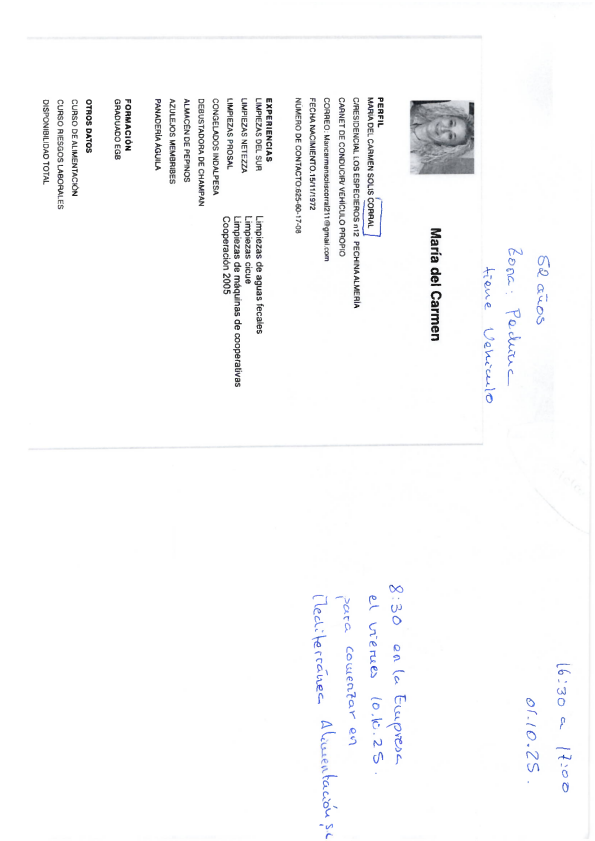 52 años
Zona: Pechina
tiene Vehiculo
María del Carmen
PERFIL
MARIA DEL CARMEN SOLIS CORRAL
C/RESIDENCIAL LOS ESPECIEROS n12 PECHINA ALMERÍA
CARNET DE CONDUCIR/ VEHÍCULO PROPIO
CORREO: Maricarmensoliscorral211@gmail.com
FECHA NACIMIENTO:15/11/1972
NUMERO DE CONTACTO:625-60-17-08
EXPERIENCIAS
LIMPIEZAS DEL SUR
LIMPIEZAS NETEZZA
LIMPIEZAS PROSAL
CONGELADOS INDALPESA
DEBUSTADORA DE CHAMPAN
ALMACÉN DE PEPINOS
AZULEJOS MEMBRIBES
PANADERÍA AGUILA
Limpiezas de aguas fecales
Limpiezas cicue
Limpiezas de máquinas de cooperativas
Cooperación 2005
FORMACIÓN
GRADUADO EGB
OTROS DATOS
CURSO DE ALIMENTACIÓN
CURSO RIESGOS LABORALES
DISPONIBILIDAD TOTAL
16:30 a 17:00
01.10.25.
8:30 en la Empresa
el viernes 10.10.25.
para comenzar en
Mediterránea Alimentación,